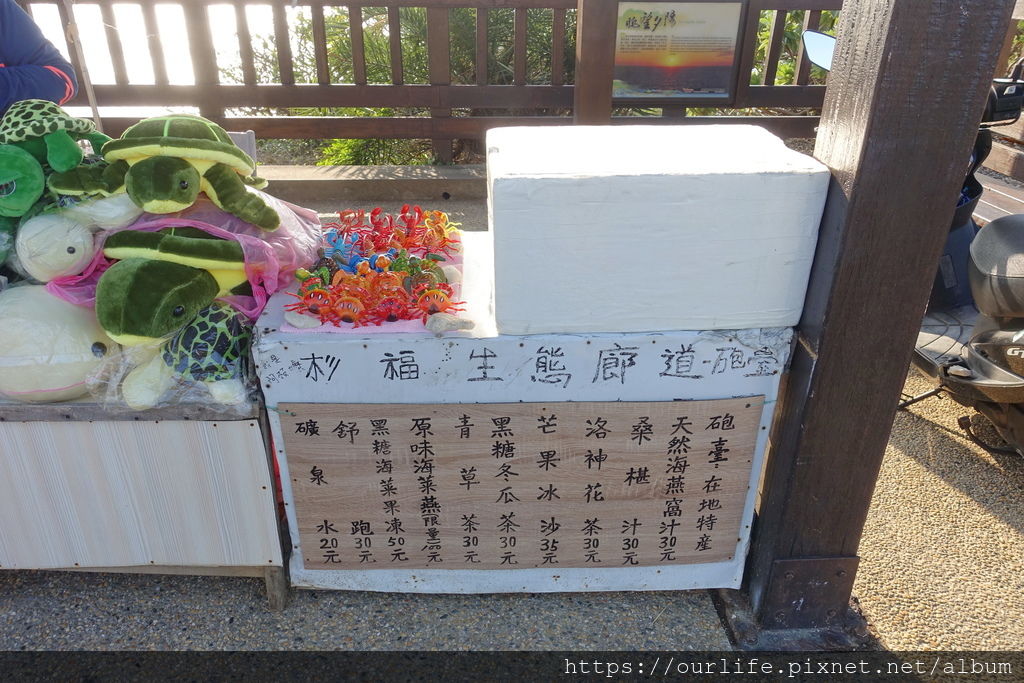 眺望夕陽
杉福生態廊道-砲臺
砲臺·在地特產
天然海燕窩汁30元
桑椹汁30元
洛神花茶30元
芒果冰沙35元
黑糖冬瓜茶30元
青草茶30元
原味海菜燕限量100元
黑糖海菜果凍50元
舒跑30元
礦泉水20元
https://ourlife.pixnet.net/album